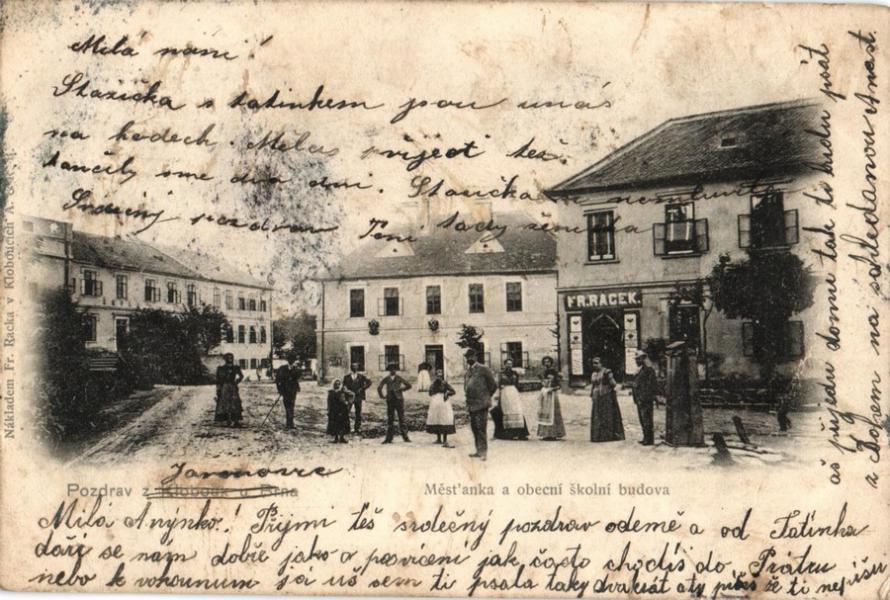 Milá
Stazička s tatinkem jsou unás
na hodech. Milas přiject též.
tančily sme dva dni. Stazička
Srdečný pozdrav Teni tady
FR. RACEK.
Nákladem Fr. Racka v Kloboucích
Jaronovze
Pozdrav z Klobouk u Brna
Měst'anka a obecní školní budova
Milá Anýnko! Přijmi těš srdečný pozdrav odemě a od Tatínka
daří se nám dobře jako o posvícení jak často chodíš do Prátru
nebo k vohounum já uš sem ti psala taky dvakrát aty píšeš že ti nepíšu
aš přijedu domu tak ti budu psát
z Bohem na schledanou Anast.